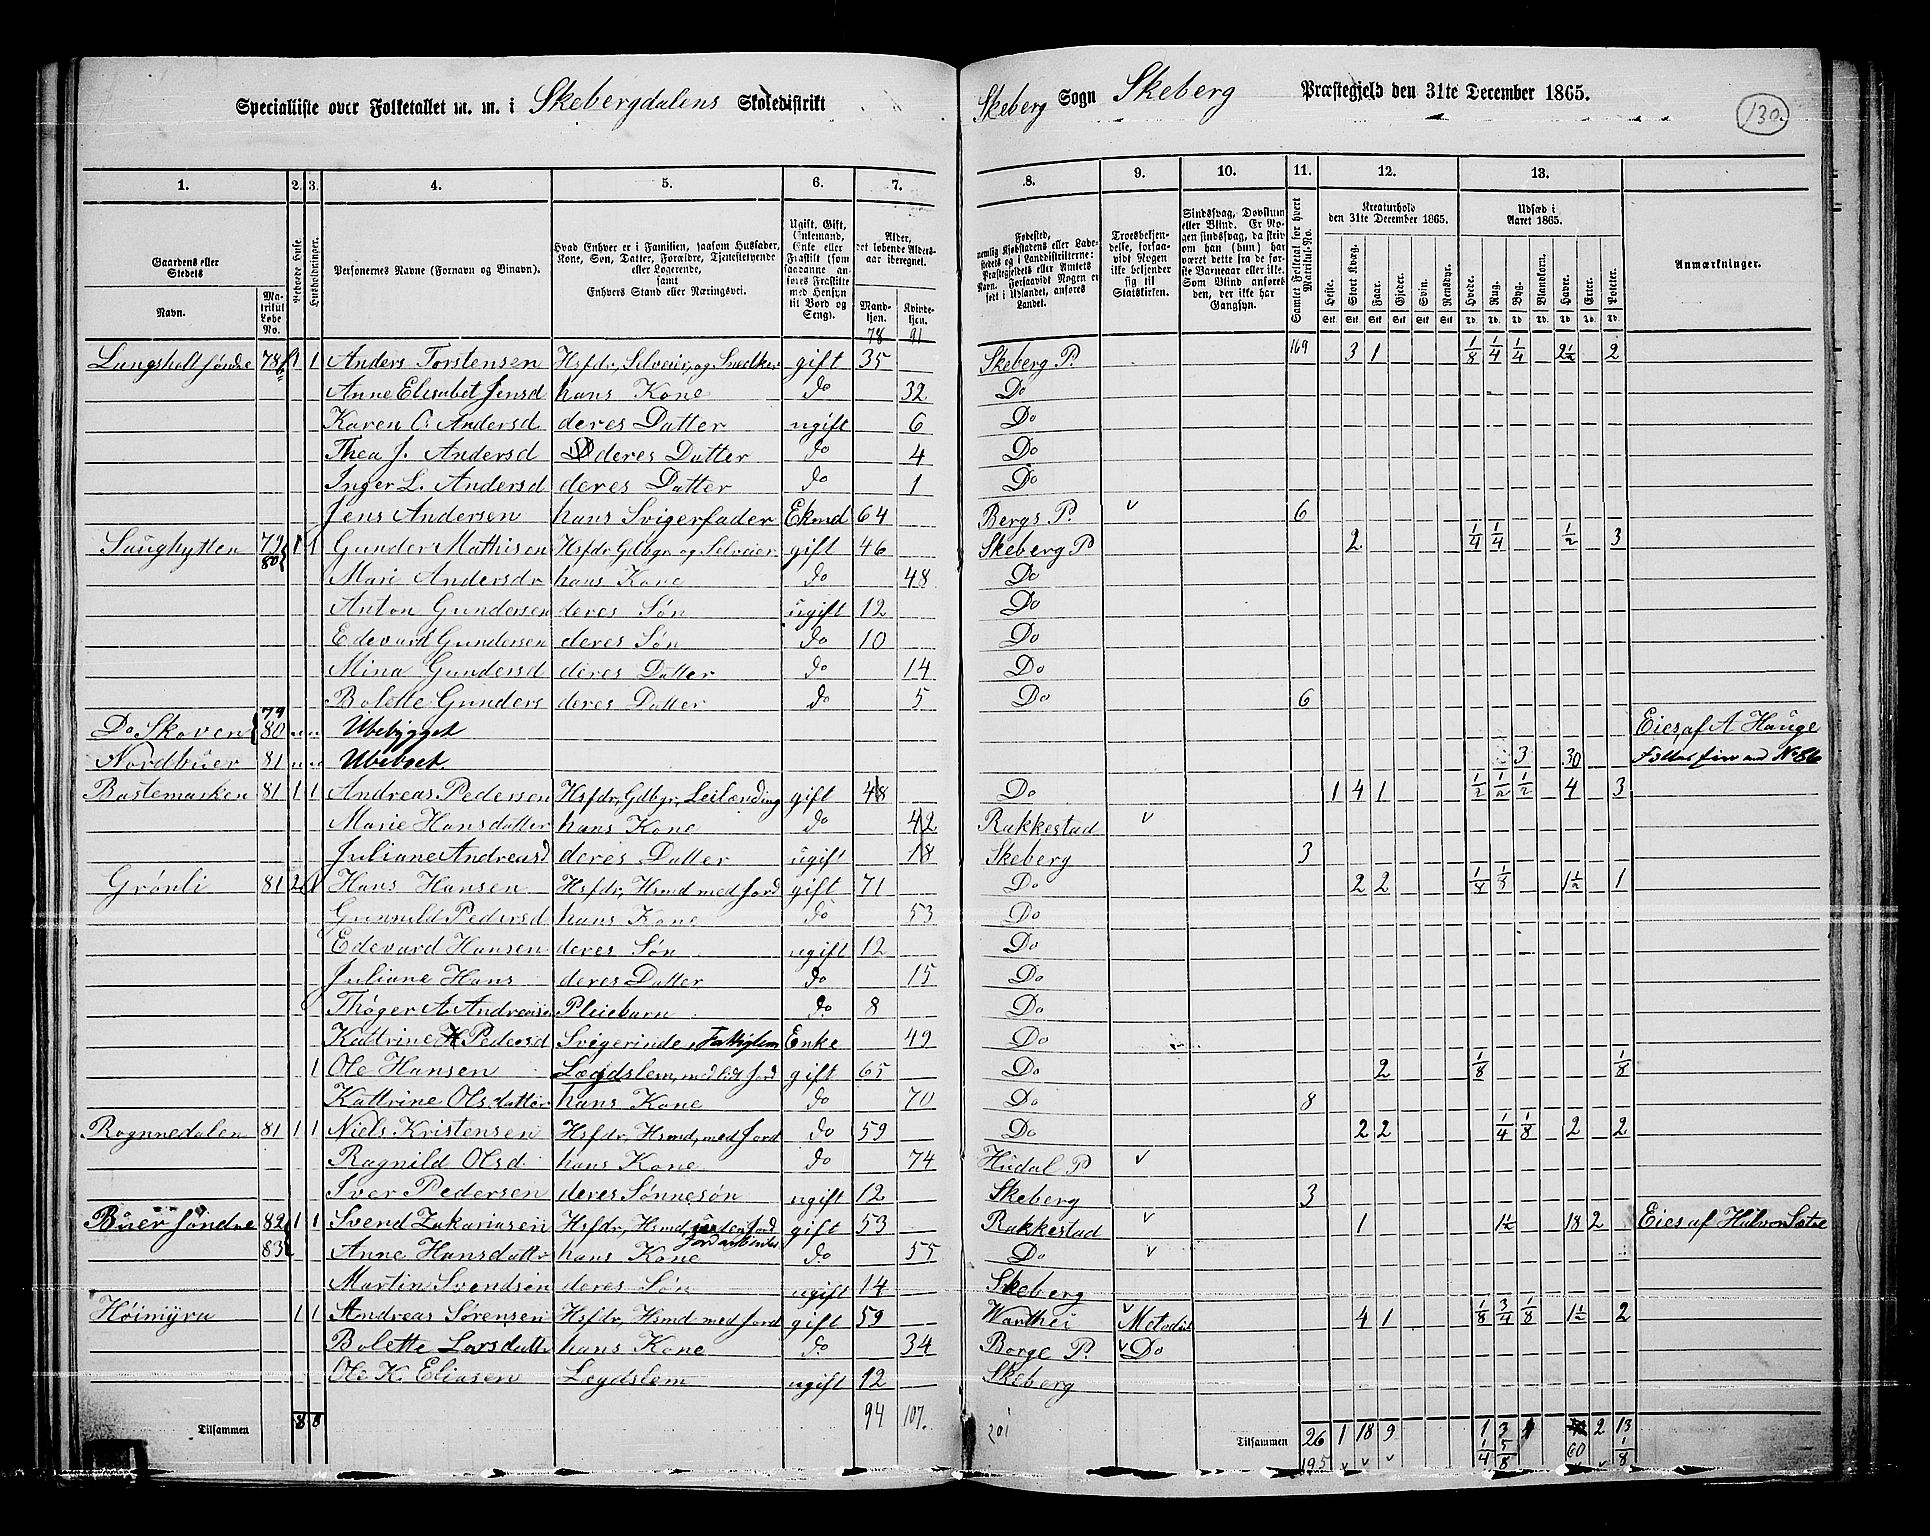 Specialliste over Folketallet m. m. i Skebergdalens Skoledistrikt Skeberg Sogn Skeberg Præstegjeld den 31te December 1865. 130.
1. 2. 3. 4. 5. 6. 7. 8. 9. 10. 11. 12. 13.
Gaardens eller Stedets Navn. Matrikul Løbe No. Beboede Huse. Husholdninger. Personernes Navne (Fornavn og Binavn). Hvad Enhver er i Familien, saasom Husfader, Kone, Søn, Datter, Forældre, Tjenestetyende eller Logerende, samt Enhvers Stand eller Næringsvei. Ugift, Gift, Enkemand, Enke eller Fraskilt (som saadanne anføres Fraskilte med Hensyn til Bord og Seng). Alder, det løbende Alders-aar iberegnet. Mandkjøn. Kvindekjøn. Fødested, nemlig Kjøbstadens eller Ladestedets og i Landdistrikterne: Præstegjeldets eller Amtets Navn. Forsaavidt Nogen er født i Udlandet, anføres Landet. Troesbekjendelse, forsaavidt Nogen ikke bekjender sig til Statskirken. Sindssvag, Døvstum eller Blind. Er Nogen sindssvag, da skrives om han (hun) har været dette fra de første Barneaar eller ikke. Som Blind anføres den, der ikke har Gangsyn. Samlet Folketal for hvert Matrikul-No. Kreaturhold den 31te December 1865. Heste. Stort Kvæg. Faar. Gjeder. Svin. Rensdyr. Udsæd i Aaret 1865. Hvede. Rug. Byg. Blandkorn. Havre. Erter. Poteter. Anmærkninger.
78 91
Lungsholt søndre 78 1 1 Anders Torstensen Hsfdr, Selveier, og Snedker gift 35 Skeberg P. 169 3 1 1/8 1/4 1/4 2 1/2 2
Anne Elisabet Jensd hans Kone do 32 Do
Karen O. Andersd deres Datter ugift 6 Do
Thea J. Andersd deres Datter do 4 Do
Inger L. Andersd deres Datter do 1 Do
Jens Andersen hans Svigerfader Ekmd 64 Bergs P. v 6
Saughytten 79 80 1 1 Gunder Mathisen Hsfdr Gdbgr og Selveier gift 46 Skeberg P 2 1/4 1/4 1/2 3
Mari Andersdr hans Kone do 48 Do
Anton Gundersen deres Søn ugift 12 Do
Edevard Gundersen deres Søn do 10 Do
Mina Gundersd deres Datter do 14 Do
Bolette Gunders deres Datter do 5 Do 6
Do Skoven 79 80 Ubebygget Eies af A Hauge
Nordbuer 81 Ubeboet. 3 30
Bastemarken 81 1 1 Andreas Pedersen Hsfdr, Gdbgr, Leilænding gift 48 Do 1 4 1 1/2 1/2 1/2 4 3
Marie Hansdatter hans Kone do 42 Rakkestad v
Juliane Andreasd deres Datter ugift 18 Skeberg 3
Grønli 81 2 1 Hans Hansen Hsfdr, Hsmd med Jord gift 71 Do 2 2 1/8 1/8 1 1/2 1
Gunnild Pedersd hans Kone do 53 Do
Edevard Hansen deres Søn ugift 12 Do
Juliane Hans deres Datter do 15 Do
Thøger A Andreasen Pleiebarn do 8 Do
Kattrine H Pedersd Svigerinde, Fattiglem Enke 49 Do
1 Ole Hansen Lægdslem, med lidt Jord gift 65 Do 2 1/8 1/8
Kattrine Olsdatter hans Kone do 70 Do 8
Rognnedalen 81 1 1 Niels Kristensen Hsfdr, Hsmd, med Jord do 59 Do 2 2 1/4 1/8 2 2
Ragnild Olsd. hans Kone do 74 Hudal P v
Iver Pedersen deres Sønnesøn ugift 12 Skeberg 3
Buer søndre 82 83 1 1 Svend Zakariasen Hsfdr, Hsmd, uden Jord Jordarbeider gift 53 Rakkestad v 1 1 1/2 18 2 Eies af Halvor Sætre
Anne Hansdattr hans Kone do 55 Do v
Martin Svendsen deres Søn ugift 14 Skeberg
Høimyra 1 1 Andreas Sørensen Hsfdr, Hsmd med Jord gift 59 v Metodist 4 1 1/8 3/4 1/8 1 1/2 2
Bolette Larsdattr hans Kone do 34 Borge P. v Do
Ole K. Eliasen Legdslem ugift 12 Skeberg
Tilsammen 8 8 94 107. 201 Tilsammen 26 1 18 9 1 1/4 3 5/8 60 2 13 1/8
195 v v v